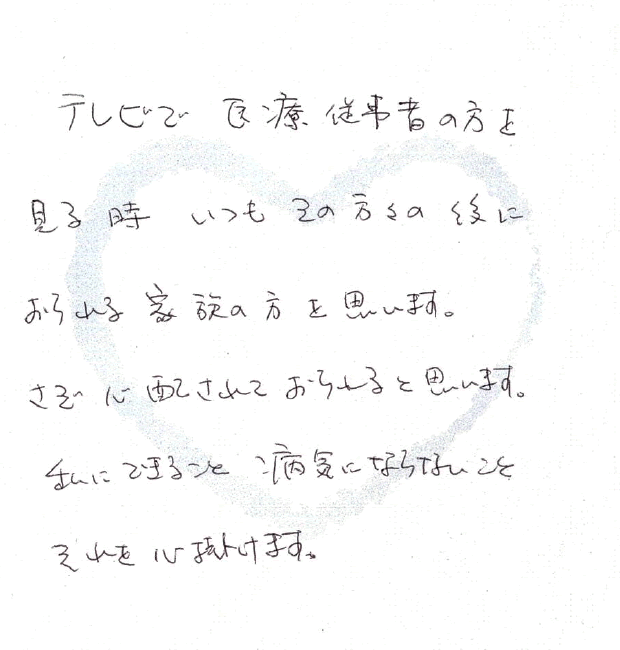 テレビで 医療従事者の方を
見る時 いつも その方々の後に
おられる 家族の方を思います。
さぞ心配されておられると思います。
私にできること 病気にならないこと
それを心掛けます。